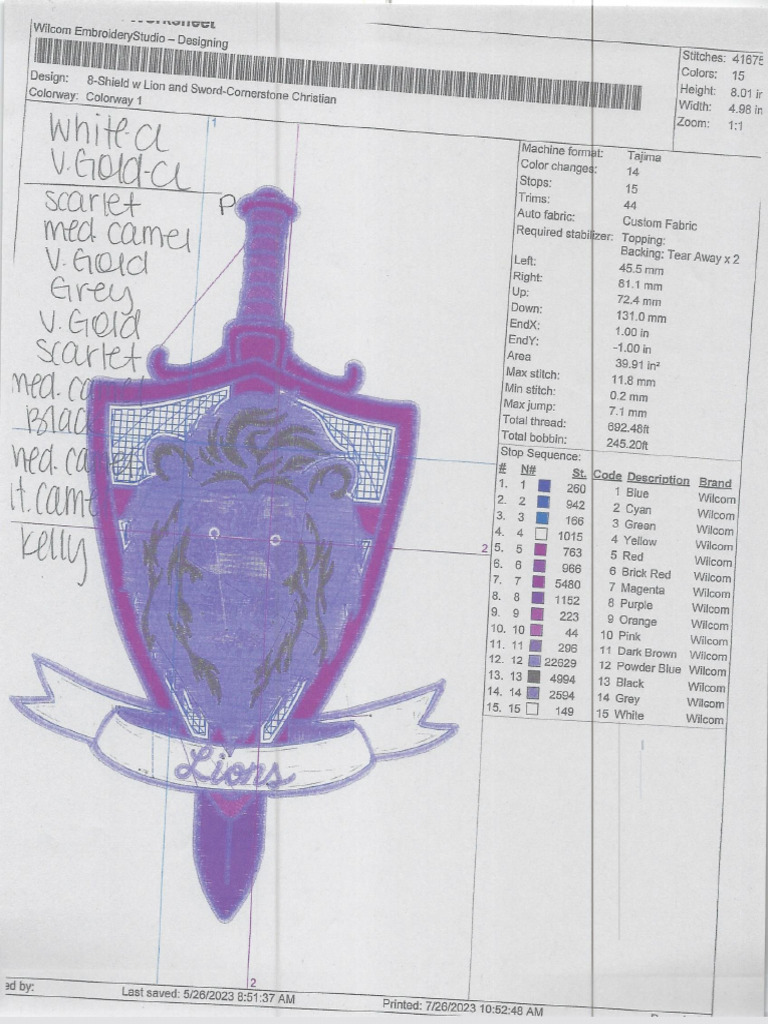 Worksheet
Wilcom EmbroideryStudio – Designing
Design: 8-Shield w Lion and Sword-Cornerstone Christian
Colorway: Colorway 1
Stitches: 41675
Colors: 15
Height: 8.01 in
Width: 4.98 in
Zoom: 1:1
White-a
V. Gold-a
scarlet
med. camel
V. Gold
Grey
V. Gold
Scarlet
med. ca
Blac
med. camel
lt. came
Kelly
1
P
2
2
Lions
Machine format: Tajima
Color changes: 14
Stops: 15
Trims: 44
Auto fabric: Custom Fabric
Required stabilizer: Topping:
Backing: Tear Away x 2
Left: 45.5 mm
Right: 81.1 mm
Up: 72.4 mm
Down: 131.0 mm
EndX: 1.00 in
EndY: -1.00 in
Area 39.91 in²
Max stitch: 11.8 mm
Min stitch: 0.2 mm
Max jump: 7.1 mm
Total thread: 692.48ft
Total bobbin: 245.20ft
Stop Sequence:
# N# St. Code Description Brand
1. 1 260 1 Blue Wilcom
2. 2 942 2 Cyan Wilcom
3. 3 166 3 Green Wilcom
4. 4 1015 4 Yellow Wilcom
5. 5 763 5 Red Wilcom
6. 6 966 6 Brick Red Wilcom
7. 7 5480 7 Magenta Wilcom
8. 8 1152 8 Purple Wilcom
9. 9 223 9 Orange Wilcom
10. 10 44 10 Pink Wilcom
11. 11 296 11 Dark Brown Wilcom
12. 12 22629 12 Powder Blue Wilcom
13. 13 4994 13 Black Wilcom
14. 14 2594 14 Grey Wilcom
15. 15 149 15 White Wilcom
ed by:
Last saved: 5/26/2023 8:51:37 AM
Printed: 7/26/2023 10:52:48 AM